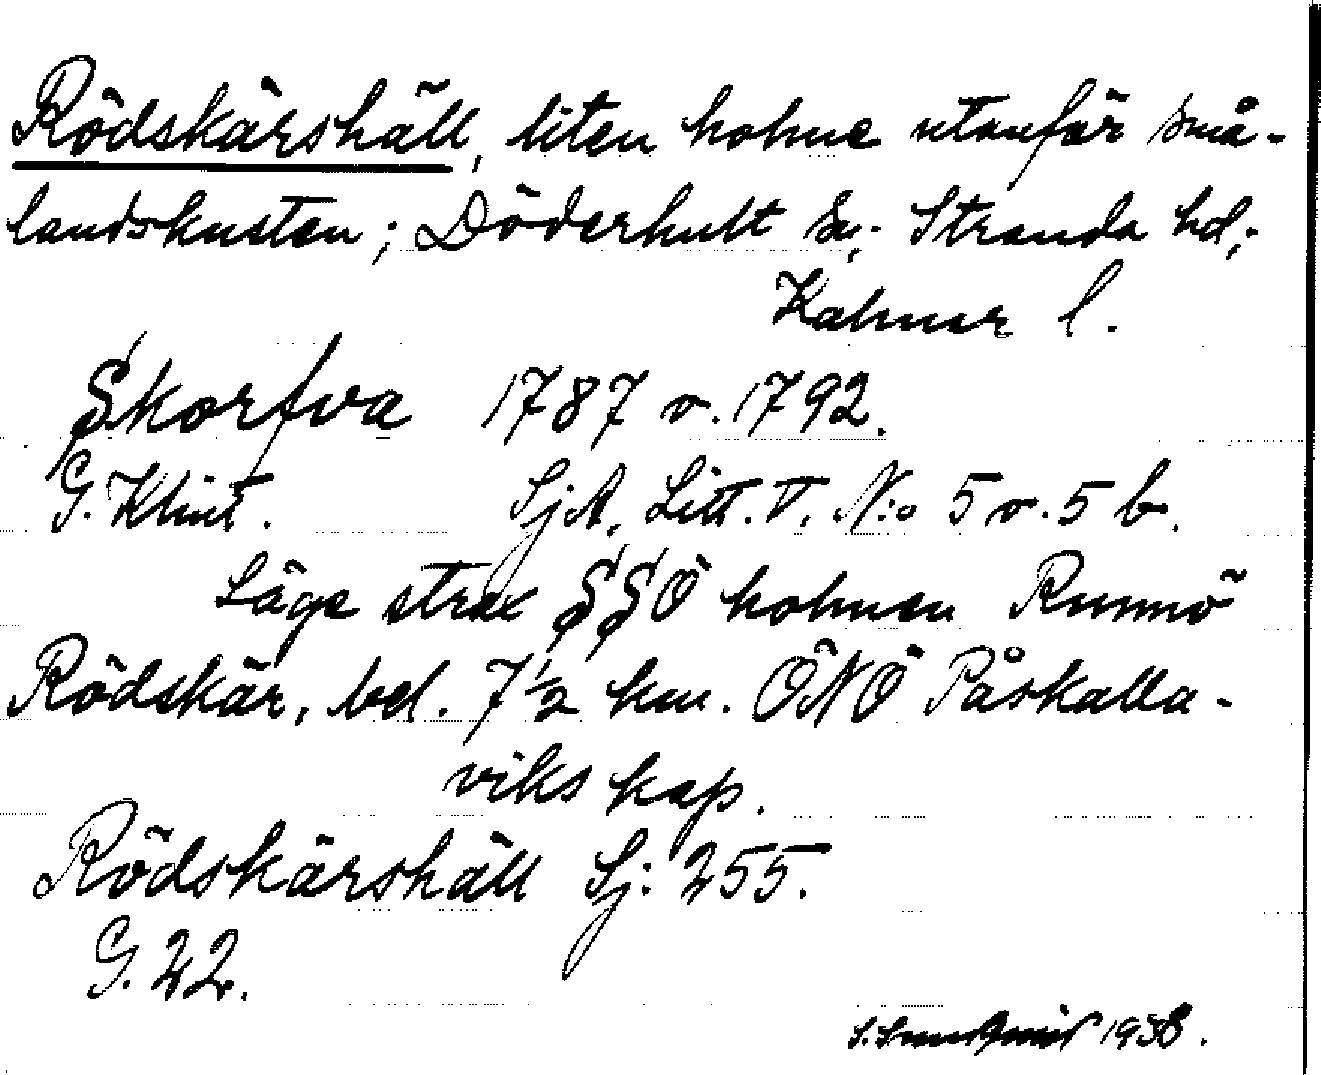 Rödskärshäll, liten holme utanför små-
landskusten; Döderhult sn; Stranda hd;
Kalmar l.
Skorfva 1787 o. 1792.
G. Klint. SjA, Litt. V. N:o 5 o. 5 b.
Läge strax SSO holmen Runnö
Rödskär, bel. 7½ km. ONO Påskalla-
viks kap.
Rödskärshäll Sj: 255.
G. 22.
1938.